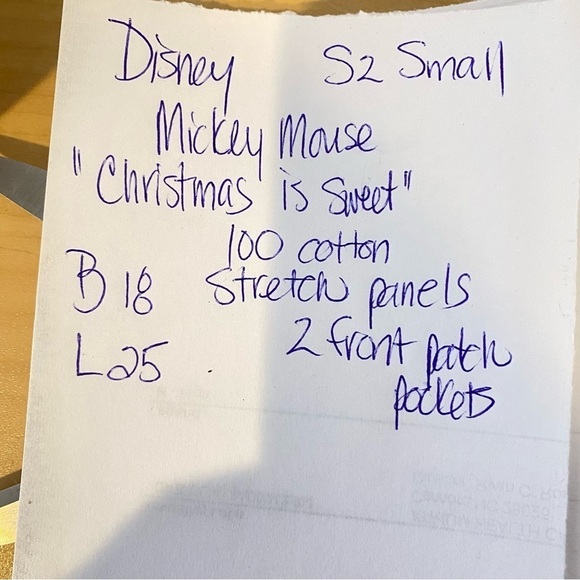 Disney S2 Small
Mickey Mouse
"Christmas is Sweet"
100 cotton
B 18 Stretch panels
L25 2 front patch
pockets